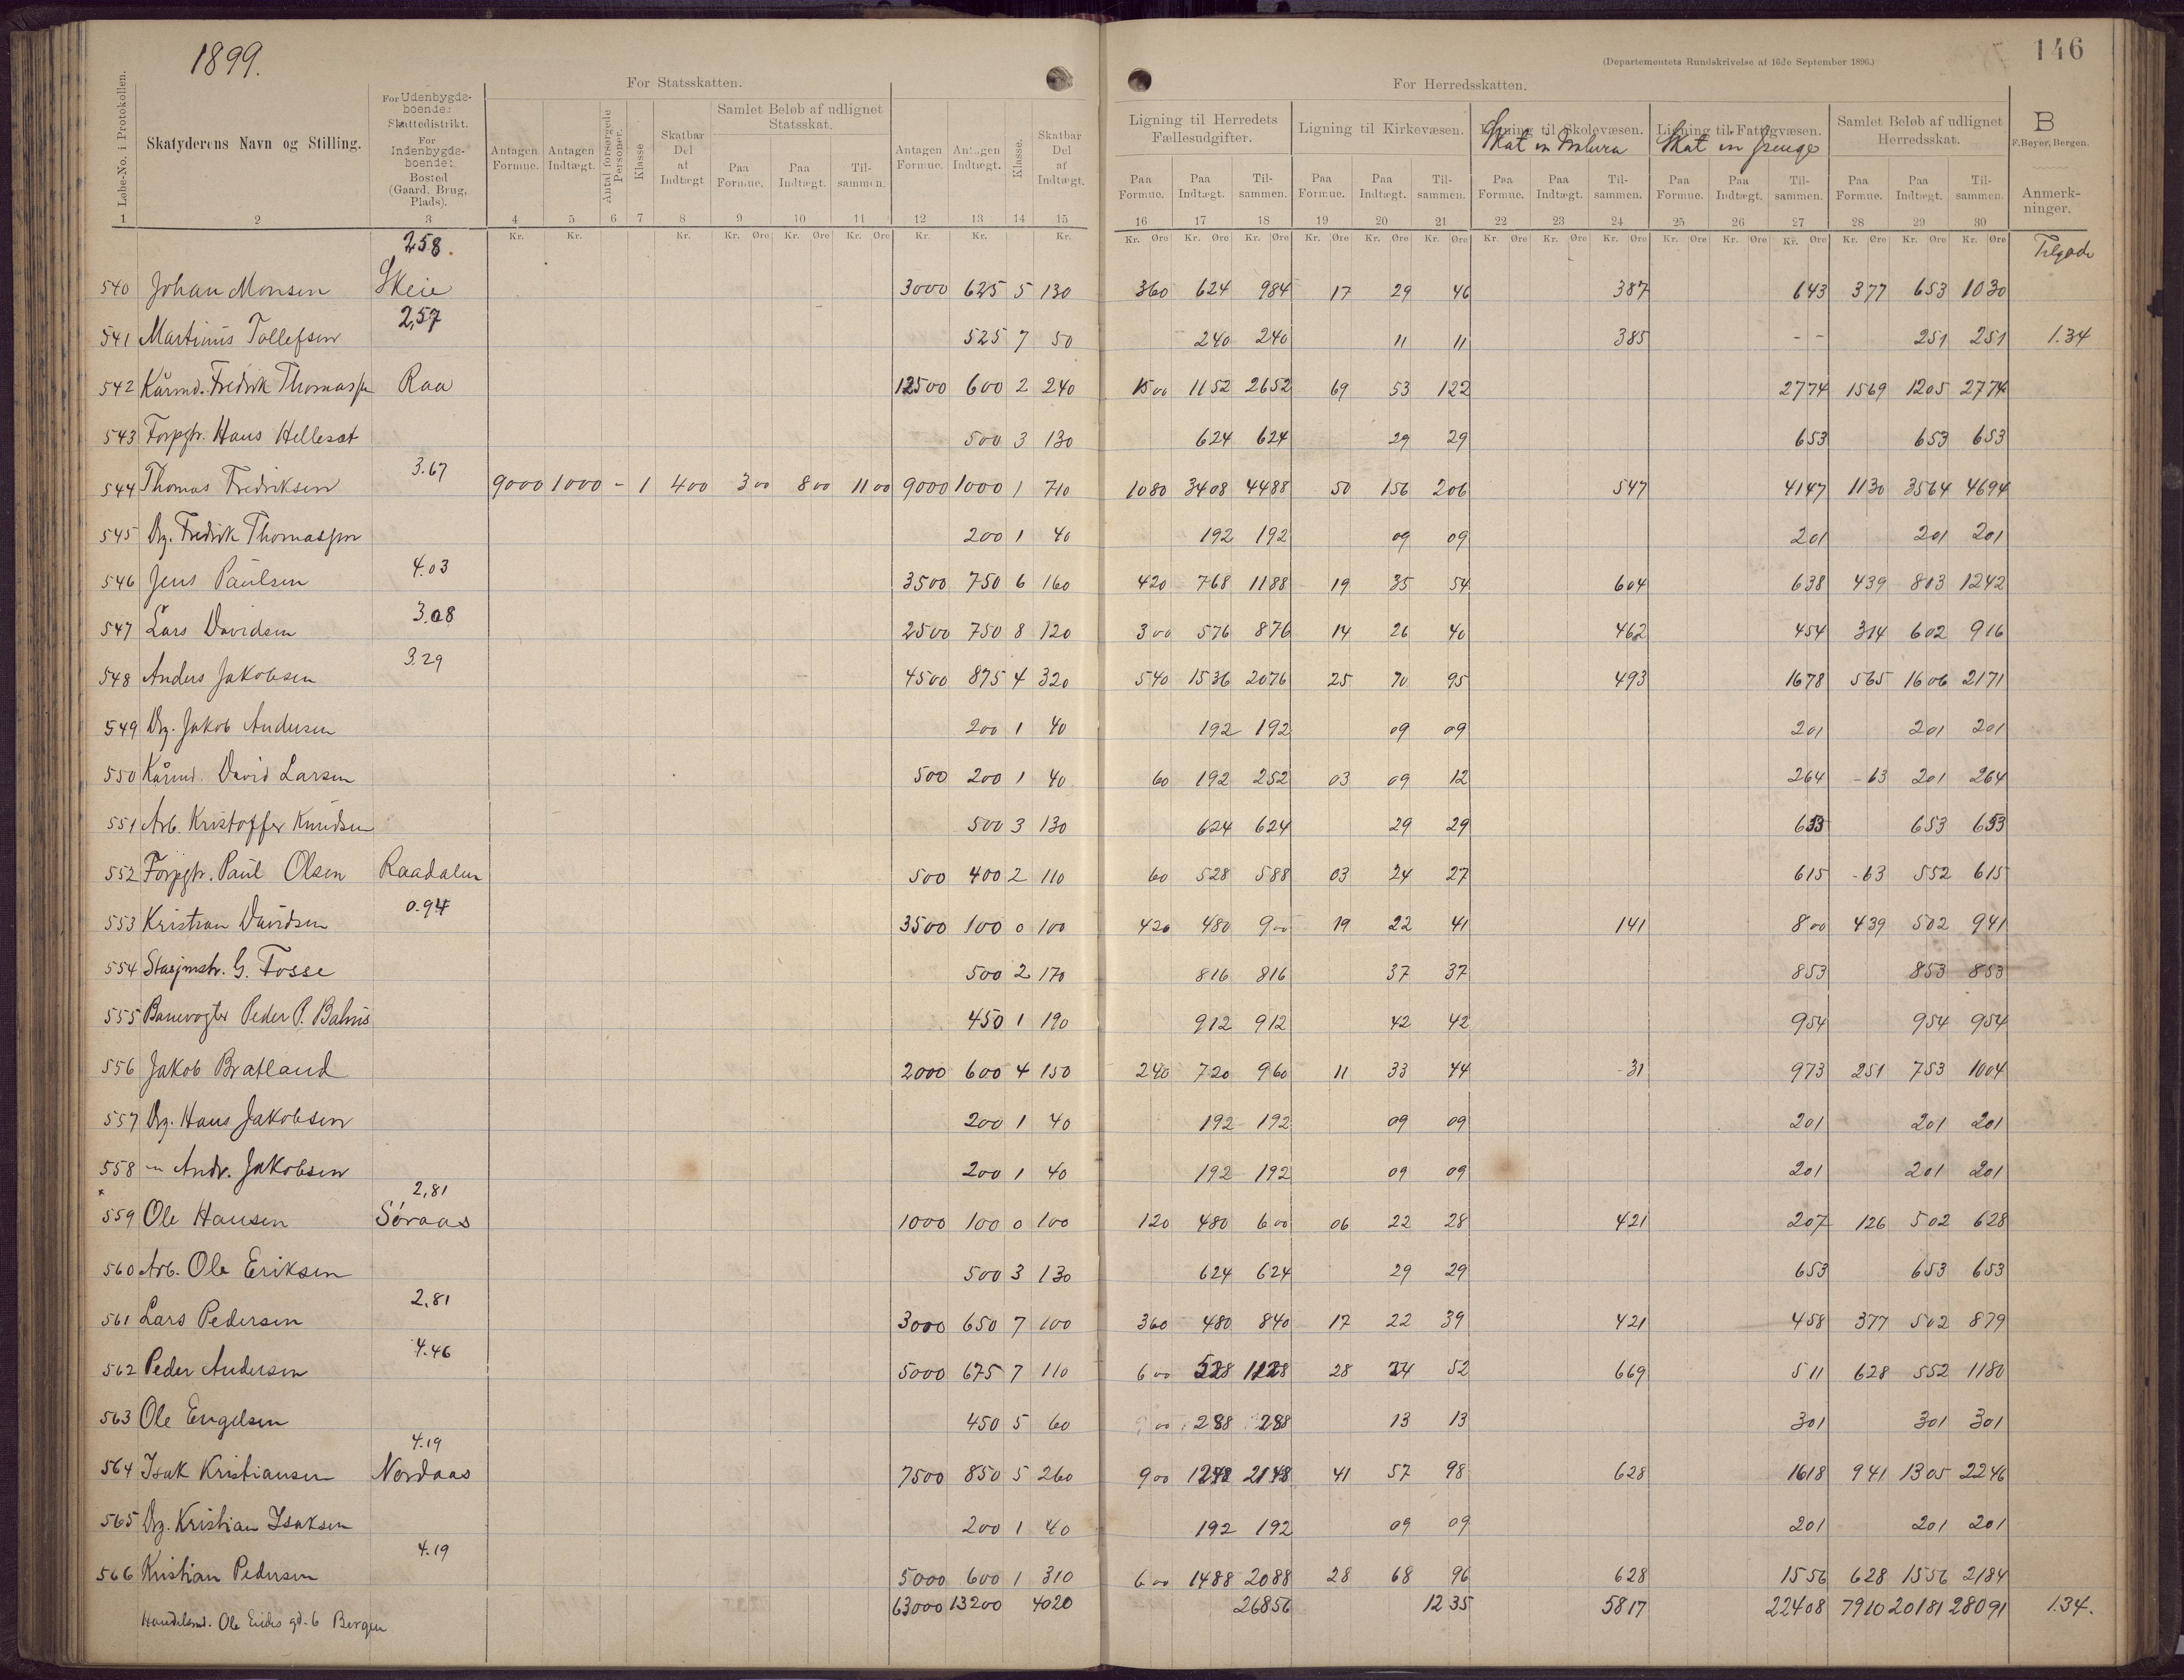 1899.
146
(Departementets Rundskrivelse af 16de September 1896.)
For Statsskatten.
For Herredsskatten.
Løbe-No. i Protokollen.
Skatyderens Navn og Stilling.
For Udenbygds-boende: Skattedistrikt. For Indenbygds-boende: Bosted (Gaard, Brug, Plads).
Antagen Formue. Antagen Indtægt. Antal forsørgede Personer. Klasse Skatbar Del af Indtægt
Samlet Beløb af udlignet Statsskat. Paa Formue. Paa Indtægt. Til-sammen.
Antagen Formue. Antagen Indtægt. Klasse. Skatbar Del af Indtægt.
Ligning til Herredets Fællesudgifter. Paa Formue. Paa Indtægt. Til-sammen.
Ligning til Kirkevæsen. Paa Formue. Paa Indtægt. Til-sammen.
Ligning til Skolevæsen. Skat in Natura Paa Formue. Paa Indtægt. Til-sammen.
Ligning til Fattigvæsen. Skat in Penge Paa Formue. Paa Indtægt. Til-sammen.
Samlet Beløb af udlignet Herredsskat. Paa Formue. Paa Indtægt. Til-sammen.
B
F. Beyer, Bergen.
Anmerk-ninger.
1 2 3 4 5 6 7 8 9 10 11 12 13 14 15 16 17 18 19 20 21 22 23 24 25 26 27 28 29 30
Kr. Kr. Kr. Kr. Øre Kr. Øre Kr. Øre Kr. Kr. Kr. Kr. Øre Kr. Øre Kr. Øre Kr. Øre Kr. Øre Kr. Øre Kr. Øre Kr. Øre Kr. Øre Kr. Øre Kr. Øre Kr. Øre Kr. Øre Kr. Øre Kr. Øre
258. Tilgode
540 Johan Monsen Skeie 3000 625 5 130 360 624 984 17 29 46 387 643 377 653 1030
2,57
541 Martinus Tollefsen 525 7 50 240 240 11 11 385 - - 251 251 1.34
542 Kårmd. Fredrik Thomassen Raa 12500 600 2 240 1500 1152 2652 69 53 122 2774 1569 1205 2774
543 Forpgtr. Hans Helleset 500 3 130 624 624 29 29 653 653 653
3.67
544 Thomas Fredriksen 9000 1000 - 1 400 300 800 1100 9000 1000 1 710 1080 3408 4488 50 156 206 547 4147 1130 3564 4694
545 Ug. Fredrik Thomassen 200 1 40 192 192 09 09 201 201 201
4.03
546 Jens Paulsen 3500 750 6 160 420 768 1188 19 35 54 604 638 439 803 1242
3.08
547 Lars Davidsen 2500 750 8 120 300 576 876 14 26 40 462 454 314 602 916
3.29
548 Anders Jakobsen 4500 875 4 320 540 1536 2076 25 70 95 493 1678 565 1606 2171
549 Ug. Jakob Andersen 200 1 40 192 192 09 09 201 201 201
550 Kårmd. David Larsen 500 200 1 40 60 192 252 03 09 12 264 -63 201 264
551 Arb. Kristoffer Knudsen 500 3 130 624 624 29 29 653 653 653
552 Forpgtr. Paul Olsen Raadalen 500 400 2 110 60 528 588 03 24 27 615 -63 552 615
0.94
553 Kristian Davidsen 3500 100 0 100 420 480 900 19 22 41 141 800 439 502 941
554 Stasjmstr. G. Fosse 500 2 170 816 816 37 37 853 853 853
555 Banevogter Peder P. 450 1 190 912 912 42 42 954 954 954
556 Jakob Bratland 2000 600 4 150 240 720 960 11 33 44 -31 973 251 753 1004
557 Ug. Hans Jakobsen 200 1 40 192 192 09 09 201 201 201
558 — Andr. Jakobsen 200 1 40 192 192 09 09 201 201 201
2,81
559 Ole Hansen Söraas 1000 100 0 100 120 480 600 06 22 28 421 207 126 502 628
560 Arb. Ole Eriksen 500 3 130 624 624 29 29 653 653 653
2.81
561 Lars Pedersen 3000 650 7 100 360 480 840 17 22 39 421 458 377 502 879
4.46
562 Peder Andersen 5000 675 7 110 600 528 1128 28 24 52 669 511 628 552 1180
563 Ole Engelsen 450 5 60 288 288 13 13 301 301 301
4.19
564 Isak Kristiansen Nordaas 7500 850 5 260 900 1248 2148 41 57 98 628 1618 941 1305 2246
565 Ug. Kristian Isaksen 200 1 40 192 192 09 09 201 201 201
4.19
566 Kristian Pedersen 5000 600 1 310 600 1488 2088 28 68 96 628 1556 628 1556 2184
63000 13200 4020 26856 1235 5817 22408 7910 20181 28091 1.34.
Handelsmd. Ole gd. 6 Bergen